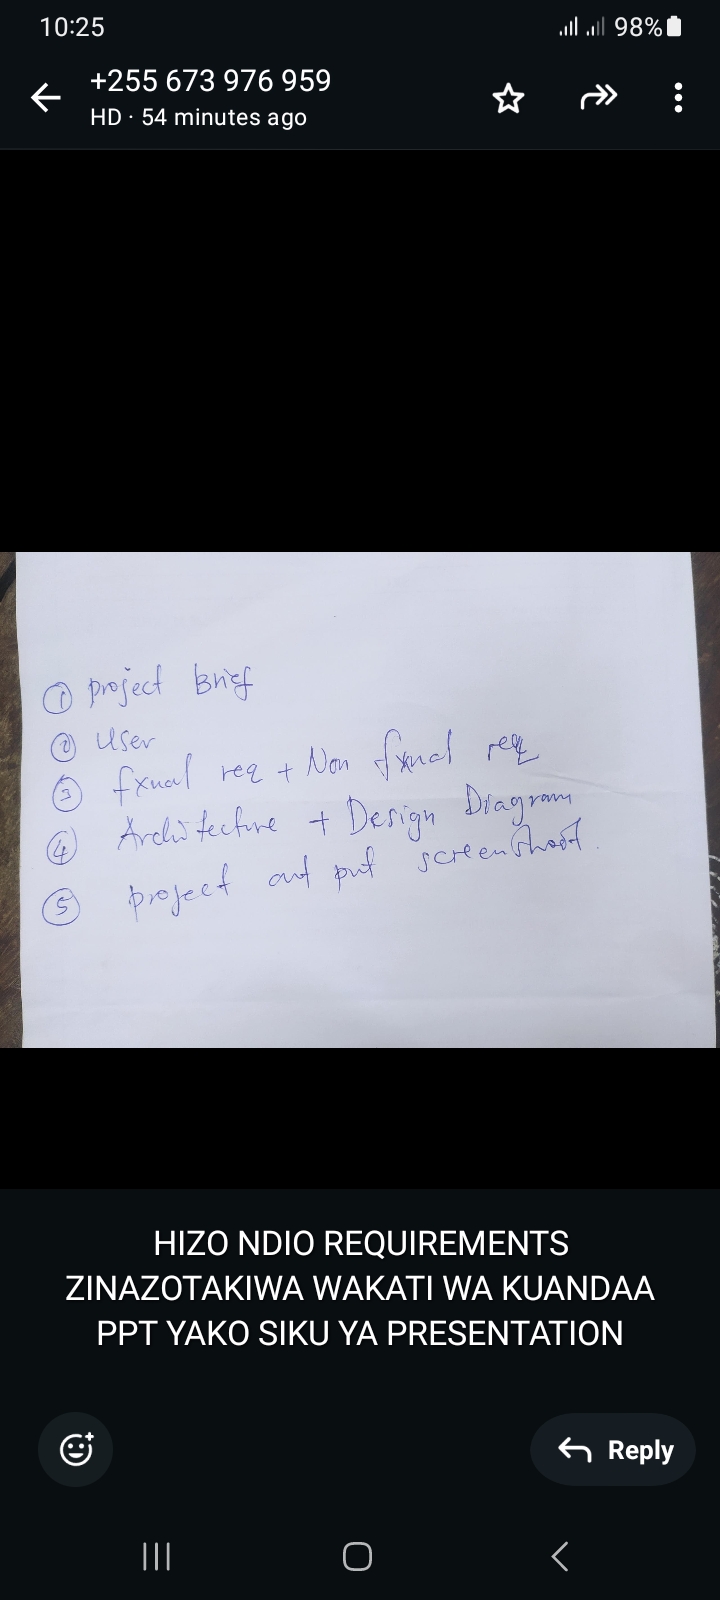 10:25
98%
+255 673 976 959
HD · 54 minutes ago
① project Brief
② User
③ fxnal req + Non fxnal req
④ Architecture + Design Diagram
⑤ project out put screenshoot.
HIZO NDIO REQUIREMENTS
ZINAZOTAKIWA WAKATI WA KUANDAA
PPT YAKO SIKU YA PRESENTATION
Reply